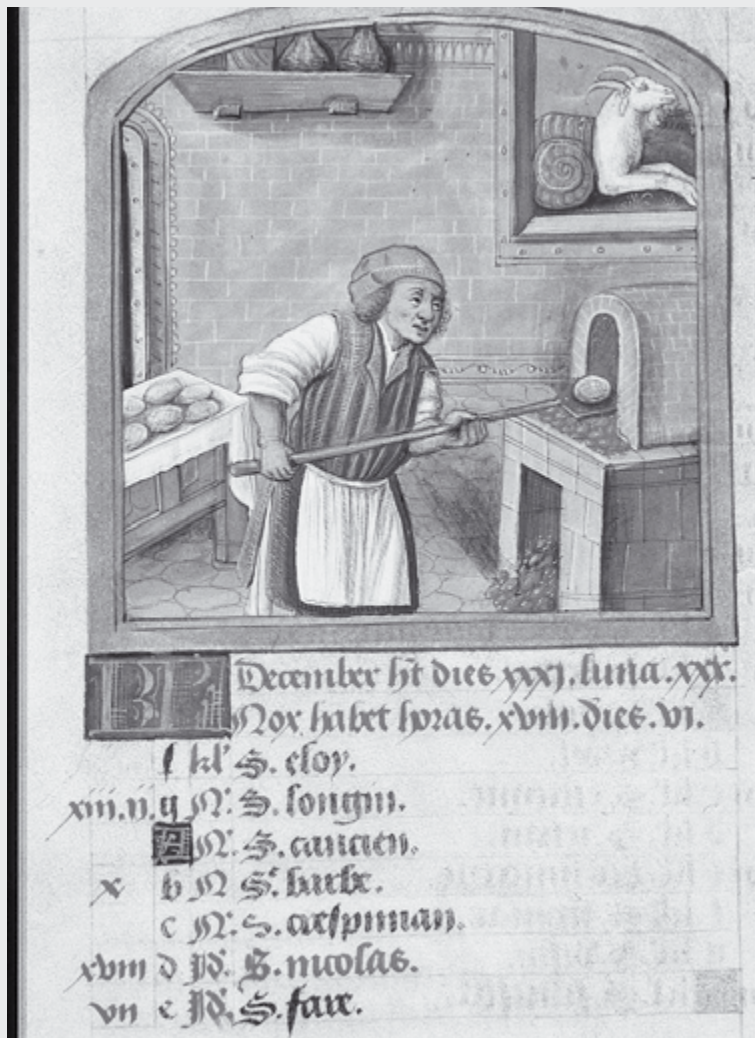 KL December ht dies xxxj. luna. xxx.
Nox habet horas. xviii. dies. vi.
f kl' S. eloy.
xiii. ii. g N. S. longin.
A N. S. cancien.
x b N Se. barbe.
c N. S. crespinian.
xviii d Id. S. nicolas.
vii e Id. S. fare.